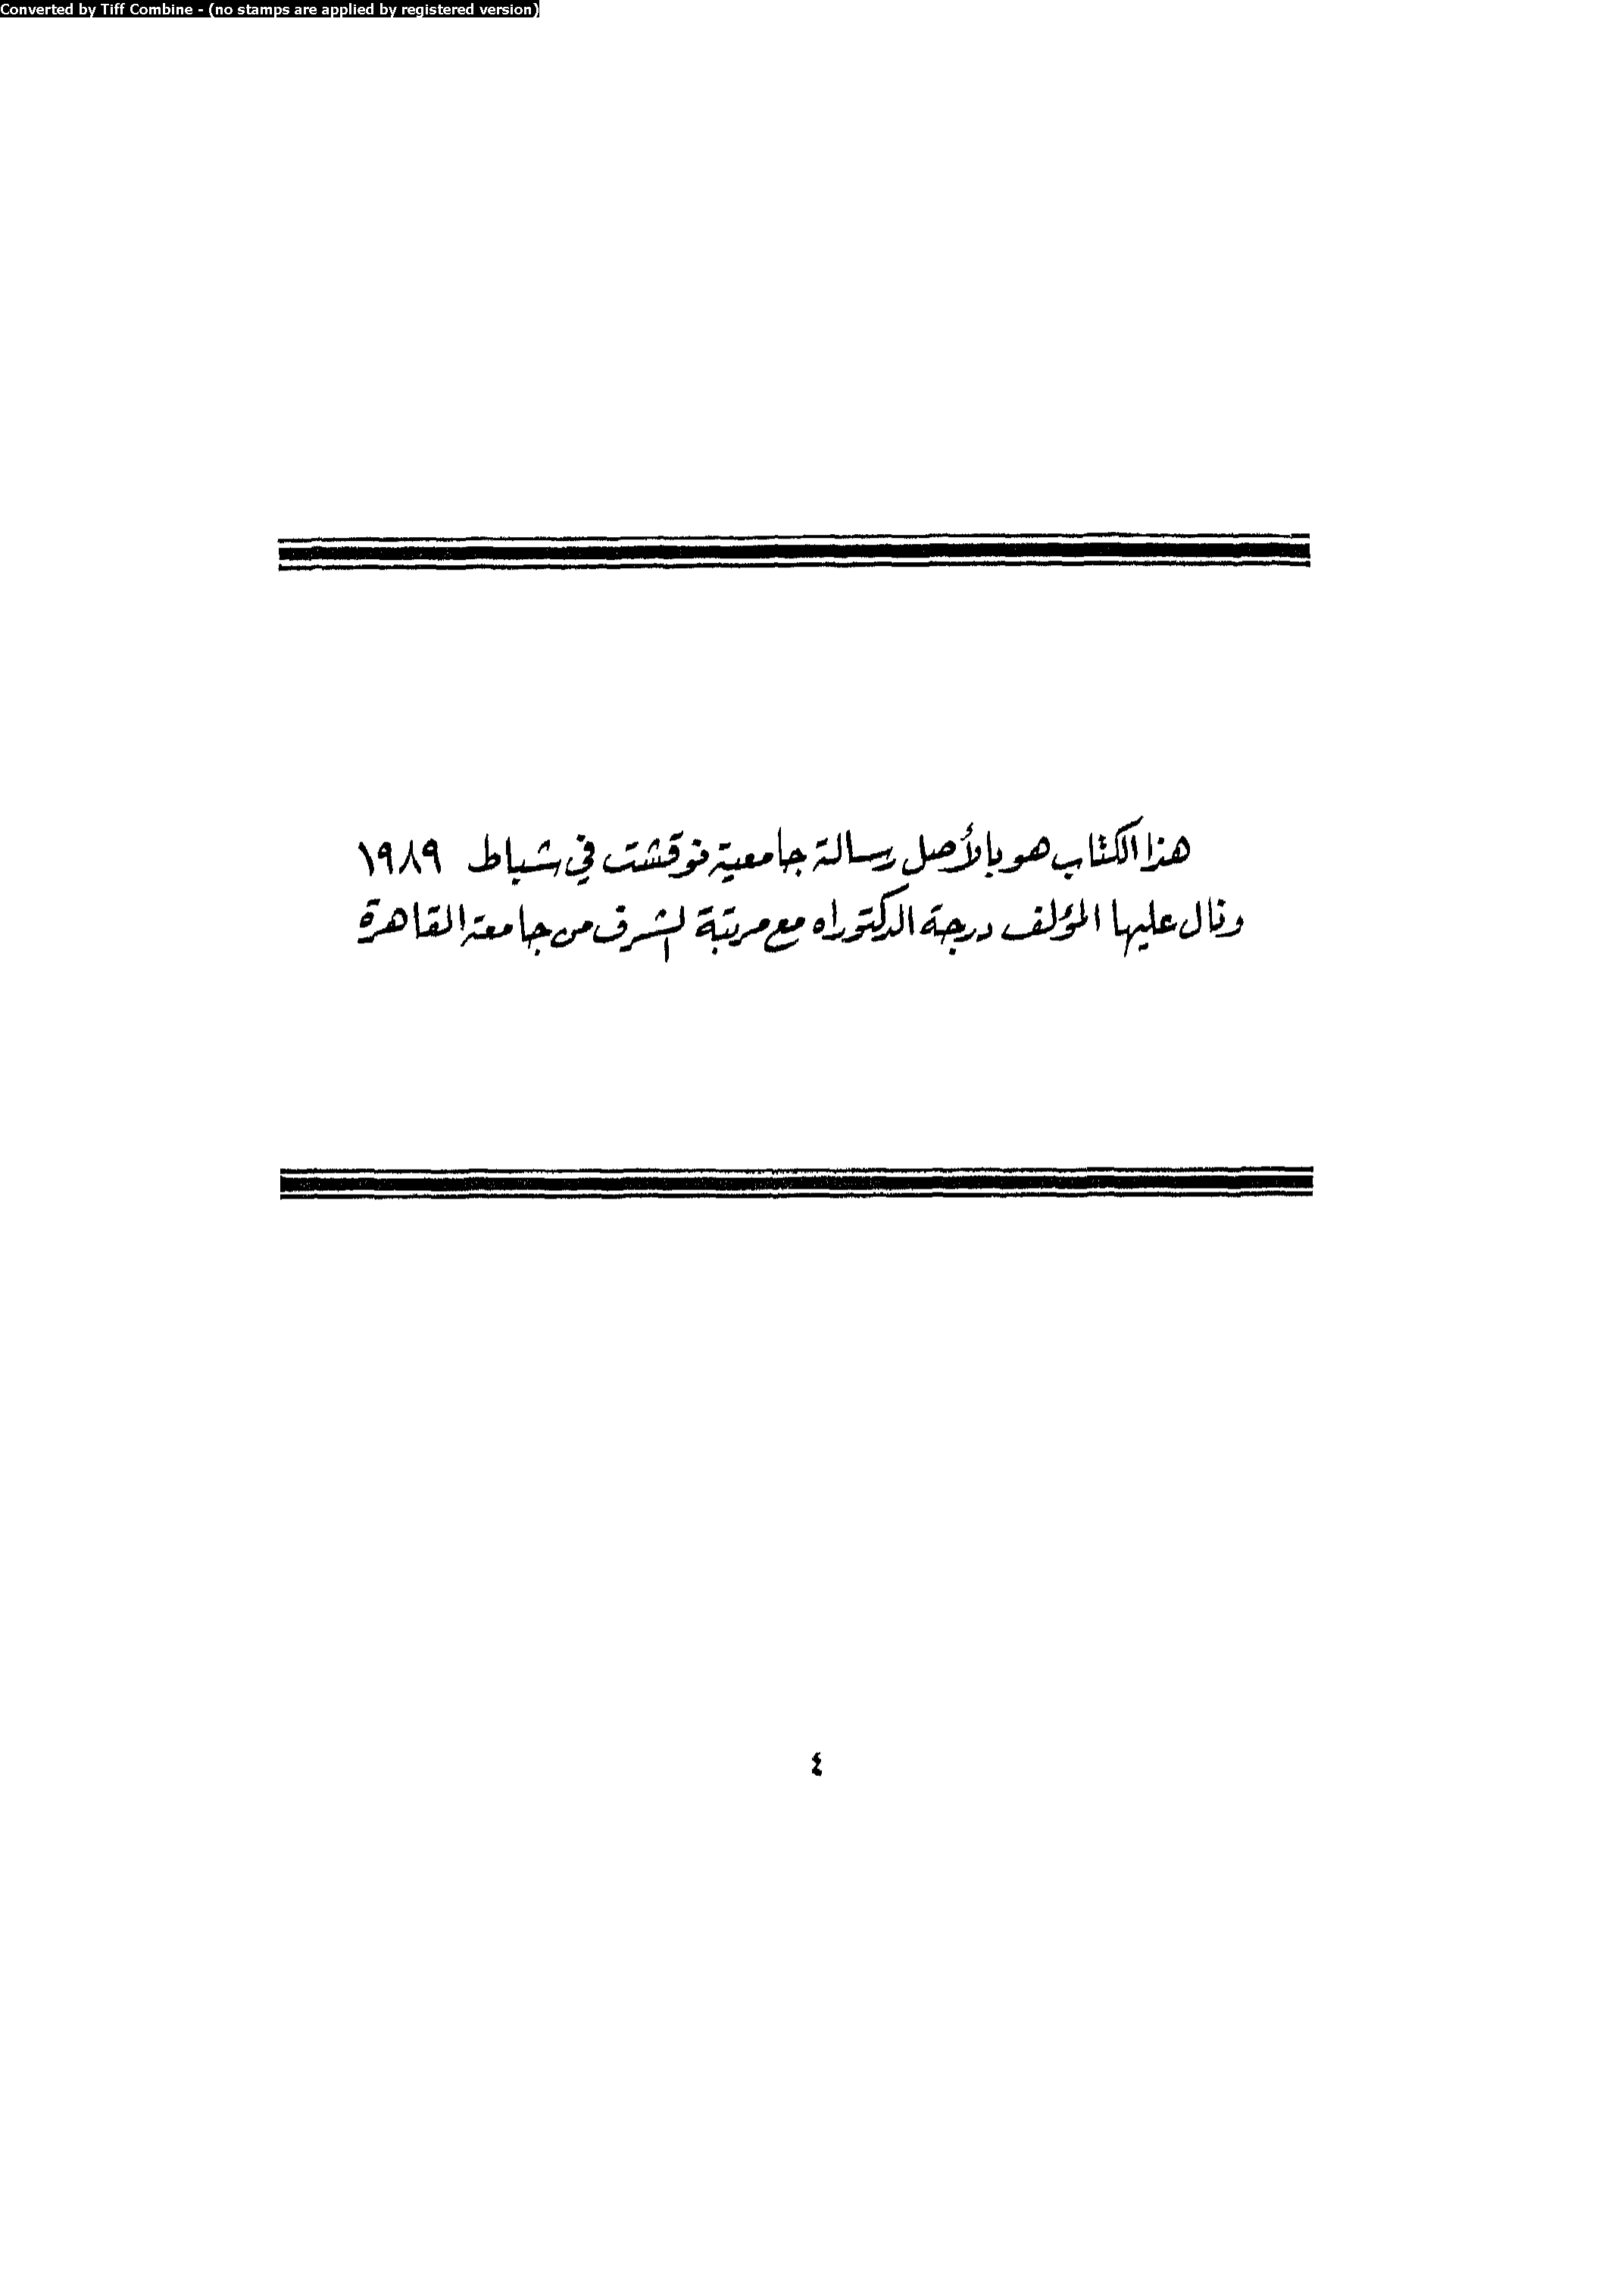 Converted by Tiff Combine - (no stamps are applied by registered version)
هذا الكتاب هو بالأصل رسالة جامعية نوقشت في شباط ١٩٨٩
ونال عليها المؤلف درجة الدكتوراه مع مرتبة الشرف من جامعة القاهرة
٤